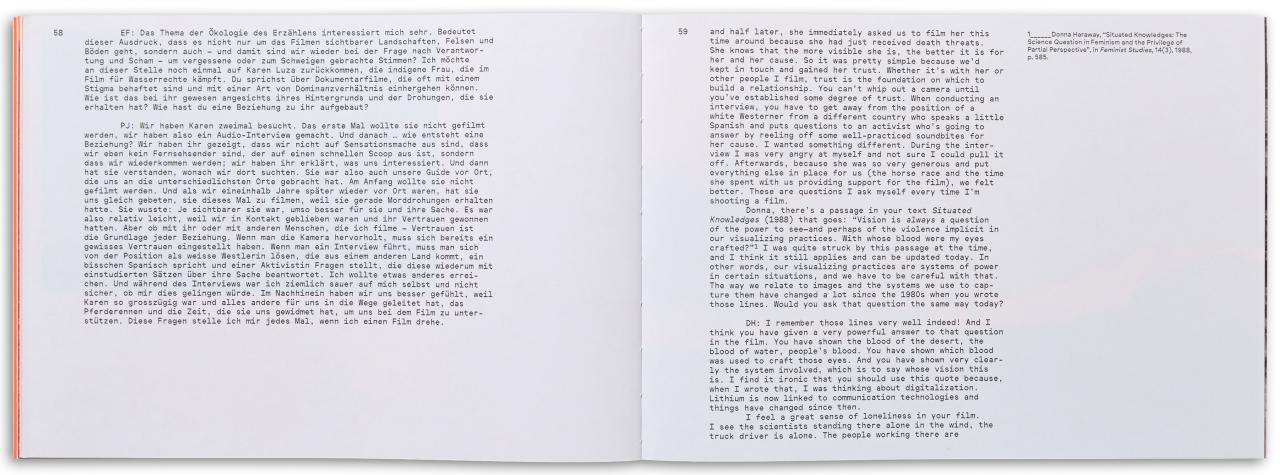 58
EF: Das Thema der Ökologie des Erzählens interessiert mich sehr. Bedeutet
dieser Ausdruck, dass es nicht nur um das Filmen sichtbarer Landschaften, Felsen und
Böden geht, sondern auch – und damit sind wir wieder bei der Frage nach Verantwor-
tung und Scham – um vergessene oder zum Schweigen gebrachte Stimmen? Ich möchte
an dieser Stelle noch einmal auf Karen Luza zurückkommen, die indigene Frau, die im
Film für Wasserrechte kämpft. Du sprichst über Dokumentarfilme, die oft mit einem
Stigma behaftet sind und mit einer Art von Dominanzverhältnis einhergehen können.
Wie ist das bei ihr gewesen angesichts ihres Hintergrunds und der Drohungen, die sie
erhalten hat? Wie hast du eine Beziehung zu ihr aufgebaut?
PJ: Wir haben Karen zweimal besucht. Das erste Mal wollte sie nicht gefilmt
werden, wir haben also ein Audio-Interview gemacht. Und danach … wie entsteht eine
Beziehung? Wir haben ihr gezeigt, dass wir nicht auf Sensationsmache aus sind, dass
wir eben kein Fernsehsender sind, der auf einen schnellen Scoop aus ist, sondern
dass wir wiederkommen werden; wir haben ihr erklärt, was uns interessiert. Und dann
hat sie verstanden, wonach wir dort suchten. Sie war also auch unsere Guide vor Ort,
die uns an die unterschiedlichsten Orte gebracht hat. Am Anfang wollte sie nicht
gefilmt werden. Und als wir eineinhalb Jahre später wieder vor Ort waren, hat sie
uns gleich gebeten, sie dieses Mal zu filmen, weil sie gerade Morddrohungen erhalten
hatte. Sie wusste: Je sichtbarer sie war, umso besser für sie und ihre Sache. Es war
also relativ leicht, weil wir in Kontakt geblieben waren und ihr Vertrauen gewonnen
hatten. Aber ob mit ihr oder mit anderen Menschen, die ich filme – Vertrauen ist
die Grundlage jeder Beziehung. Wenn man die Kamera hervorholt, muss sich bereits ein
gewisses Vertrauen eingestellt haben. Wenn man ein Interview führt, muss man sich
von der Position als weisse Westlerin lösen, die aus einem anderen Land kommt, ein
bisschen Spanisch spricht und einer Aktivistin Fragen stellt, die diese wiederum mit
einstudierten Sätzen über ihre Sache beantwortet. Ich wollte etwas anderes errei-
chen. Und während des Interviews war ich ziemlich sauer auf mich selbst und nicht
sicher, ob mir dies gelingen würde. Im Nachhinein haben wir uns besser gefühlt, weil
Karen so grosszügig war und alles andere für uns in die Wege geleitet hat, das
Pferderennen und die Zeit, die sie uns gewidmet hat, um uns bei dem Film zu unter-
stützen. Diese Fragen stelle ich mir jedes Mal, wenn ich einen Film drehe.
59
and half later, she immediately asked us to film her this
time around because she had just received death threats.
She knows that the more visible she is, the better it is for
her and her cause. So it was pretty simple because we'd
kept in touch and gained her trust. Whether it's with her or
other people I film, trust is the foundation on which to
build a relationship. You can't whip out a camera until
you've established some degree of trust. When conducting an
interview, you have to get away from the position of a
white Westerner from a different country who speaks a little
Spanish and puts questions to an activist who's going to
answer by reeling off some well-practiced soundbites for
her cause. I wanted something different. During the inter-
view I was very angry at myself and not sure I could pull it
off. Afterwards, because she was so very generous and put
everything else in place for us (the horse race and the time
she spent with us providing support for the film), we felt
better. These are questions I ask myself every time I'm
shooting a film.
Donna, there's a passage in your text Situated
Knowledges (1988) that goes: "Vision is always a question
of the power to see—and perhaps of the violence implicit in
our visualizing practices. With whose blood were my eyes
crafted?"1 I was quite struck by this passage at the time,
and I think it still applies and can be updated today. In
other words, our visualizing practices are systems of power
in certain situations, and we have to be careful with that.
The way we relate to images and the systems we use to cap-
ture them have changed a lot since the 1980s when you wrote
those lines. Would you ask that question the same way today?
DH: I remember those lines very well indeed! And I
think you have given a very powerful answer to that question
in the film. You have shown the blood of the desert, the
blood of water, people's blood. You have shown which blood
was used to craft those eyes. And you have shown very clear-
ly the system involved, which is to say whose vision this
is. I find it ironic that you should use this quote because,
when I wrote that, I was thinking about digitalization.
Lithium is now linked to communication technologies and
things have changed since then.
I feel a great sense of loneliness in your film.
I see the scientists standing there alone in the wind, the
truck driver is alone. The people working there are
1______Donna Haraway, "Situated Knowledges: The
Science Question in Feminism and the Privilege of
Partial Perspective", in Feminist Studies, 14(3), 1988,
p. 585.